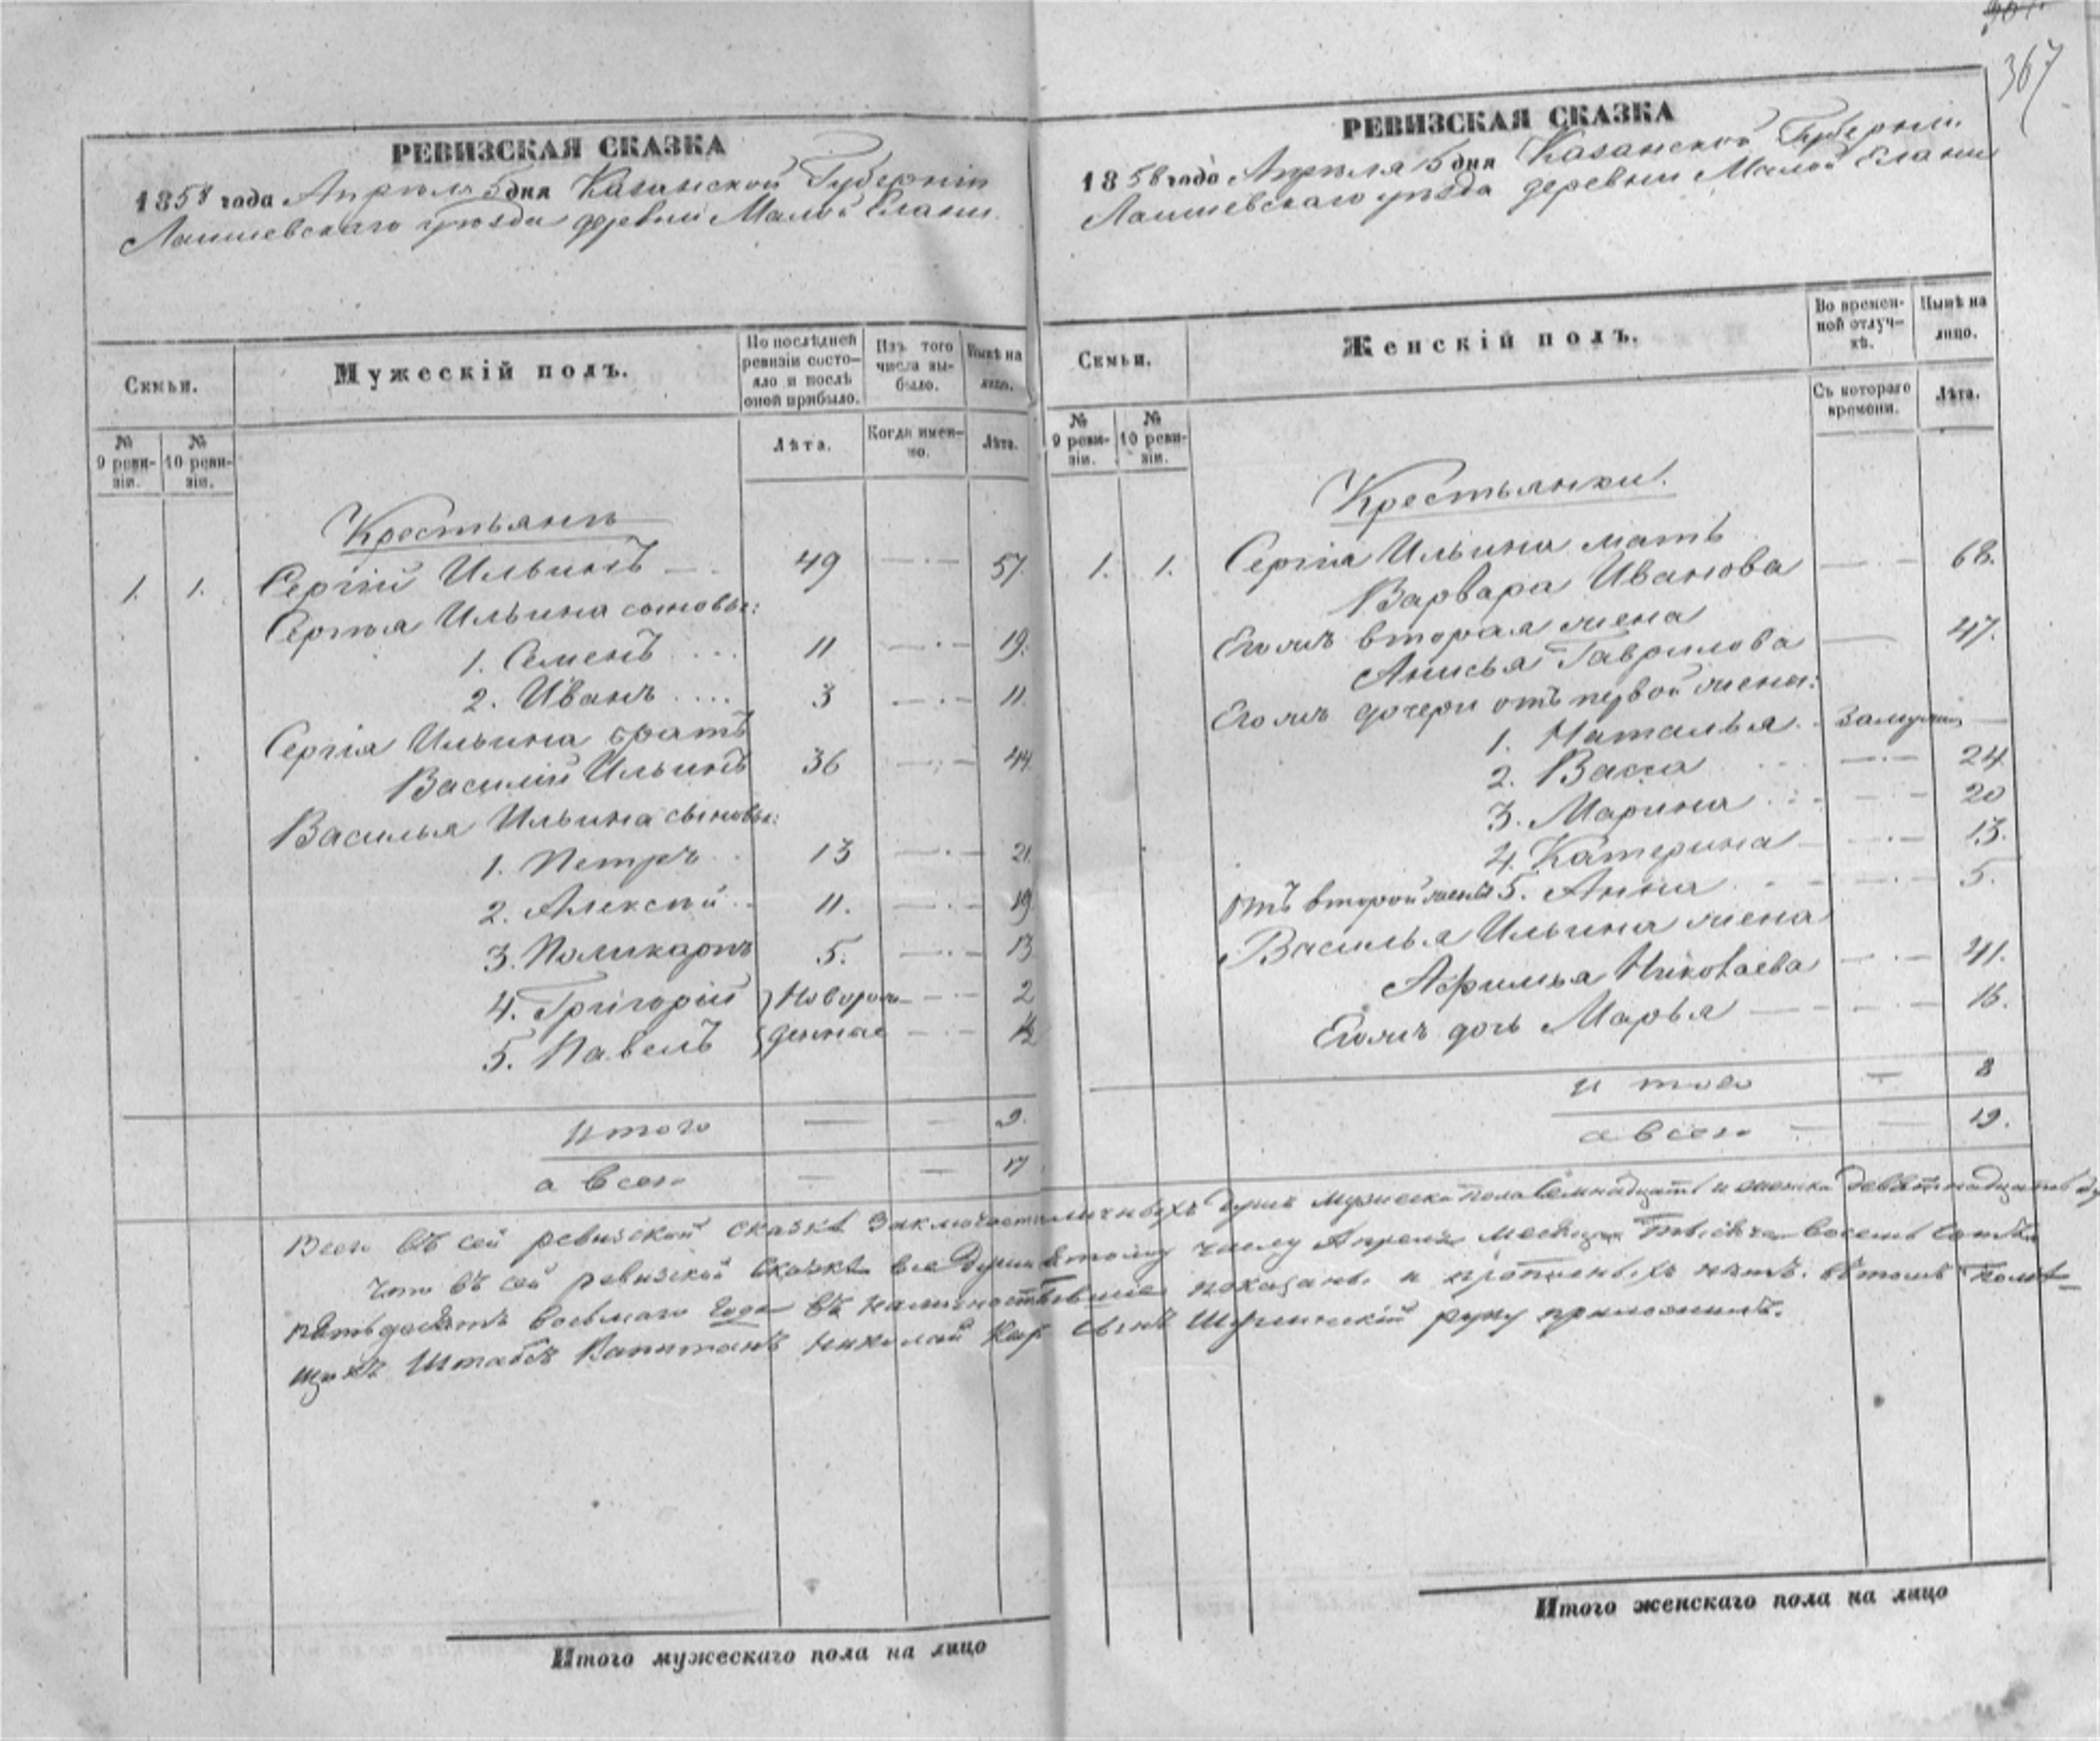 367
РЕВИЗСКАЯ СКАЗКА
1858 года Апрѣля 5 дня Казанской Губерніи
Лаишевскаго уѣзда деревни Малой Елани
Семьи.
Мужескій полъ.
По послѣдней ревизіи состояло и послѣ оной прибыло.
Изъ того числа выбыло.
Нынѣ на лицо.
№ 9 ревизіи.
№ 10 ревизіи.
Лѣта.
Когда именно.
Лѣта.
Крестьянѣ
1. 1. Сергій Ильинъ 49 57
Сергѣя Ильина сыновья:
1. Семенъ 11 19.
2. Иванъ 3 11
Сергія Ильина братъ
Василій Ильинъ 36 44
Василья Ильина сыновья:
1. Петръ 13 21
2. Алексѣй 11. 19
3. Поликарпъ 5. 13
4. Григорій Новорож- 2
5. Павелъ денные
итого 9.
а всего 17
РЕВИЗСКАЯ СКАЗКА
1858 года Апрѣля 5 дня Казанской Губерніи
Лаишевскаго уѣзда деревни Малой Елани
Семьи.
Женскій полъ.
Во временной отлучкѣ.
Нынѣ на лицо.
№ 9 ревизіи.
№ 10 ревизіи.
Съ котораго времени.
Лѣта.
Крестьянки
1. 1. Сергія Ильина мать
Варвара Иванова 68.
Егожъ вторая жена
Анисья Гаврилова 47.
Егожъ дочери отъ первой жены:
1. Наталья замужемъ
2. Васса 24
3. Марина 20
4. Катерина 13.
отъ второй жены 5. Анна 5.
Василья Ильина жена
Афимья Николаева 41.
Егожъ дочь Марья 16.
итого 8
а всего 19.
Всего въ сей ревизской сказкѣ заключается личныхъ душъ мужеска пола семнадцать и женска девятнадцать
что въ сей ревизской сказкѣ все души къ тому числу Апреля месяца тысяча восемь сотъ
пятьдесятъ восьмаго года въ наличности бывшіе показаны и прописныхъ нетъ. въ томъ помѣ-
щикъ Штабсъ Капитанъ Николай сынъ руку приложилъ.
Итого мужескаго пола на лицо
Итого женскаго пола на лицо